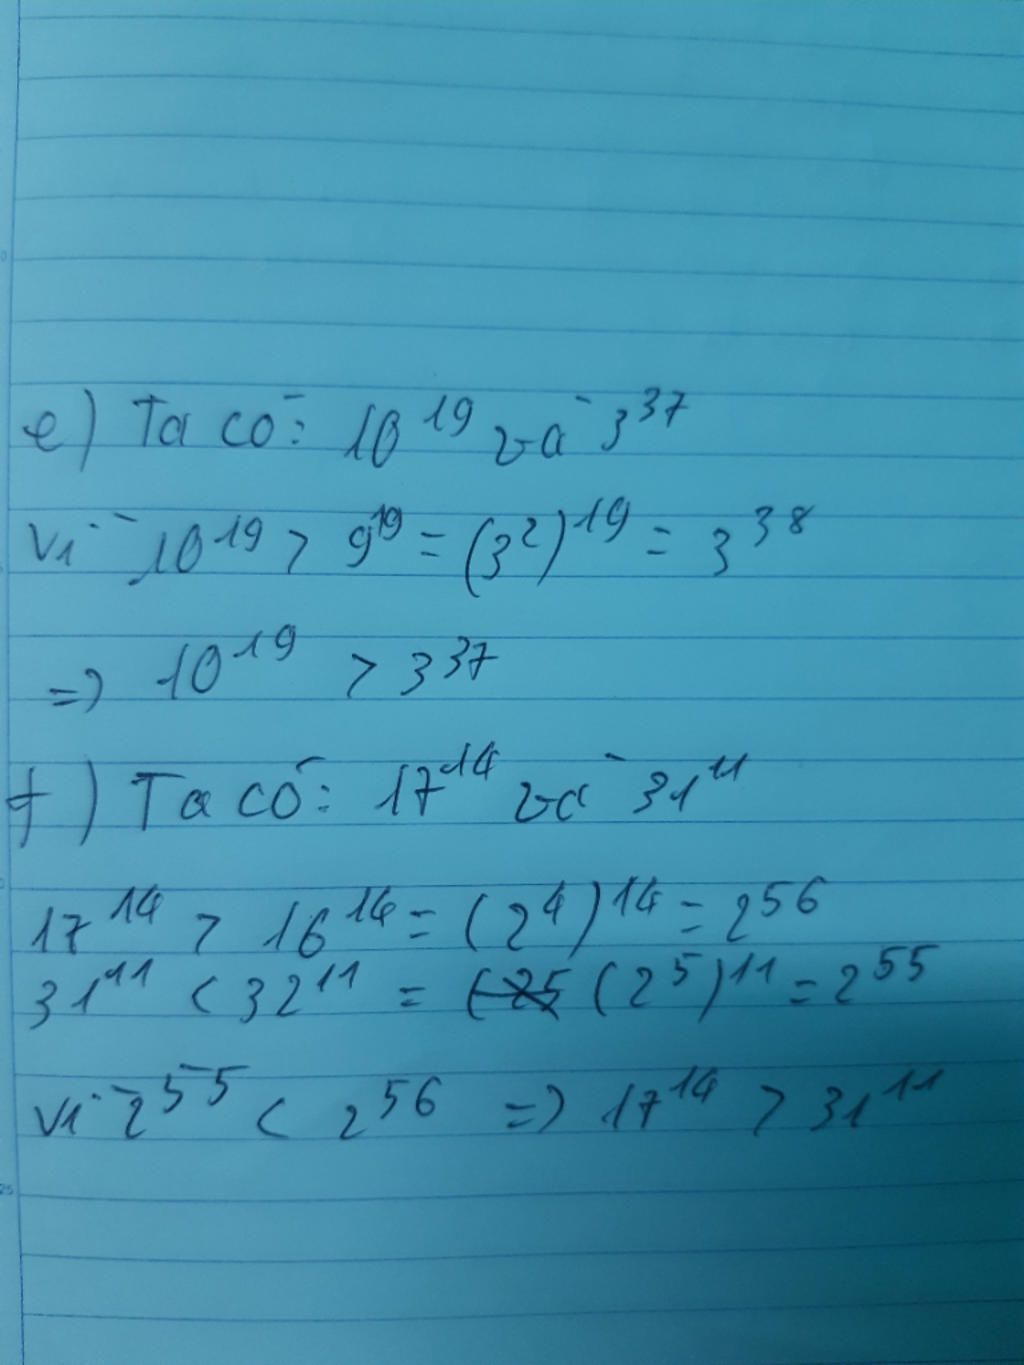 e) Ta có: 10^19 và 3^37
Vì 10^19 > 9^19 = (3^2)^19 = 3^38
=> 10^19 > 3^37
f) Ta có: 17^14 và 31^11
17^14 > 16^14 = (2^4)^14 = 2^56
31^11 < 32^11 = (2^5)^11 = 2^55
Vì 2^55 < 2^56 => 17^14 > 31^11